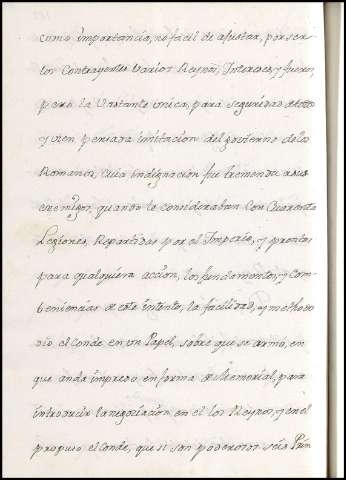 como importancia, no facil de ajustar, por ser
los Contrayentes varios Reynos, Intereses, y fueros,
pero la Vastante vnica, para seguridad de todo
y vien pensada imitacion del govierno delos
Romanos, Cuia indignacion fue tremenda asus
enemigos, quando la consideraban Con Quarenta
Legiones, Repartidas por el Imperio, y prontas
para qualquiera accion, los fundamentos, y Com-
beniencias de este intento, la facilidad, y methodo
dio el Conde en vn Papel, sobre que se armo, en
que anda impreso en forma de Memorial, para
introducir la negociacion en el los Reynos, y en el
propuso el Conde, que si son poderosos seis Prin